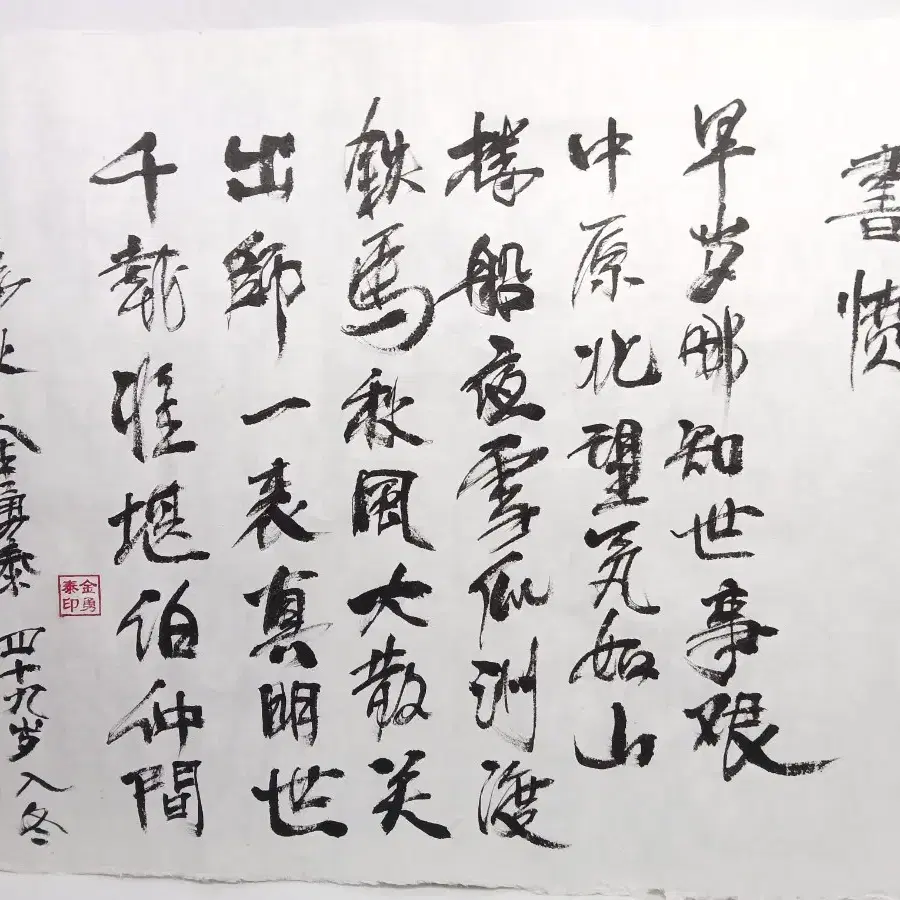 書愤
早岁那知世事艰
中原北望气如山
楼船夜雪瓜洲渡
鉄馬秋風大散关
出師一表真明世
千載谁堪伯仲間
金勇泰 四十九岁入冬
金勇泰印